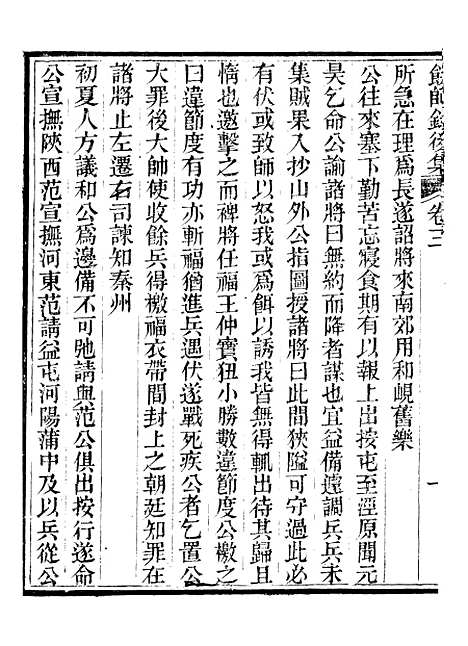 餙師錄後集 卷三 一
所急在理爲長遂詔將來南郊用和峴舊樂
公往來塞下勤苦忘寢食期有以報上出按屯至涇原聞元
昊乞命公諭諸將曰無約而降者謀也宜益備遽調兵兵未
集賊果入抄山外公指圖授諸將曰此間狹隘可守過此必
有伏或致師以怒我或爲餌以誘我皆無得輒出待其歸且
惰也邀擊之而裨將任福王仲寶狃小勝數違節度公檄之
曰違節度有功亦斬福猶進兵遇伏遂戰死疾公者乞置公
大罪後大帥使收餘兵得檄福衣帶間封上之朝廷知罪在
諸將止左遷右司諫知秦州
初夏人方議和公爲邊備不可弛請與范公俱出按行遂命
公宣撫陝西范宣撫河東范請益屯河陽蒲中及以兵從公